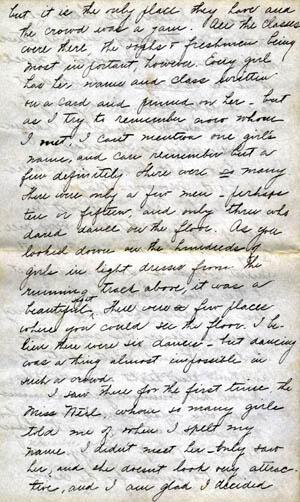 but it is the only place they have and
the crowd was a jam. All the classes
were there, the sophs & freshmen being
most important, however. Every girl
has her name and class written
on a card and pinned on her - but
as I try to remember now whom
I met, I can't mention one girls
name, and can remember but a
few definitely. There were so many
There were only a few men - perhaps
ten or fifteen, and only three who
dared dance on the floor. As you
looked down on the hundreds of
girls in light dresses from the
running track above it was a
beautiful sight. There were few places
where you could see the floor. I be-
lieve there were six dances - but dancing
was a thing almost impossible in
such a crowd.
I saw there for the first time the
Miss, whom so many girls
told me of when I spelt my
name. I didn't meet her - only saw
her, and she doesn't look very attrac-
tive, and I am glad I decided